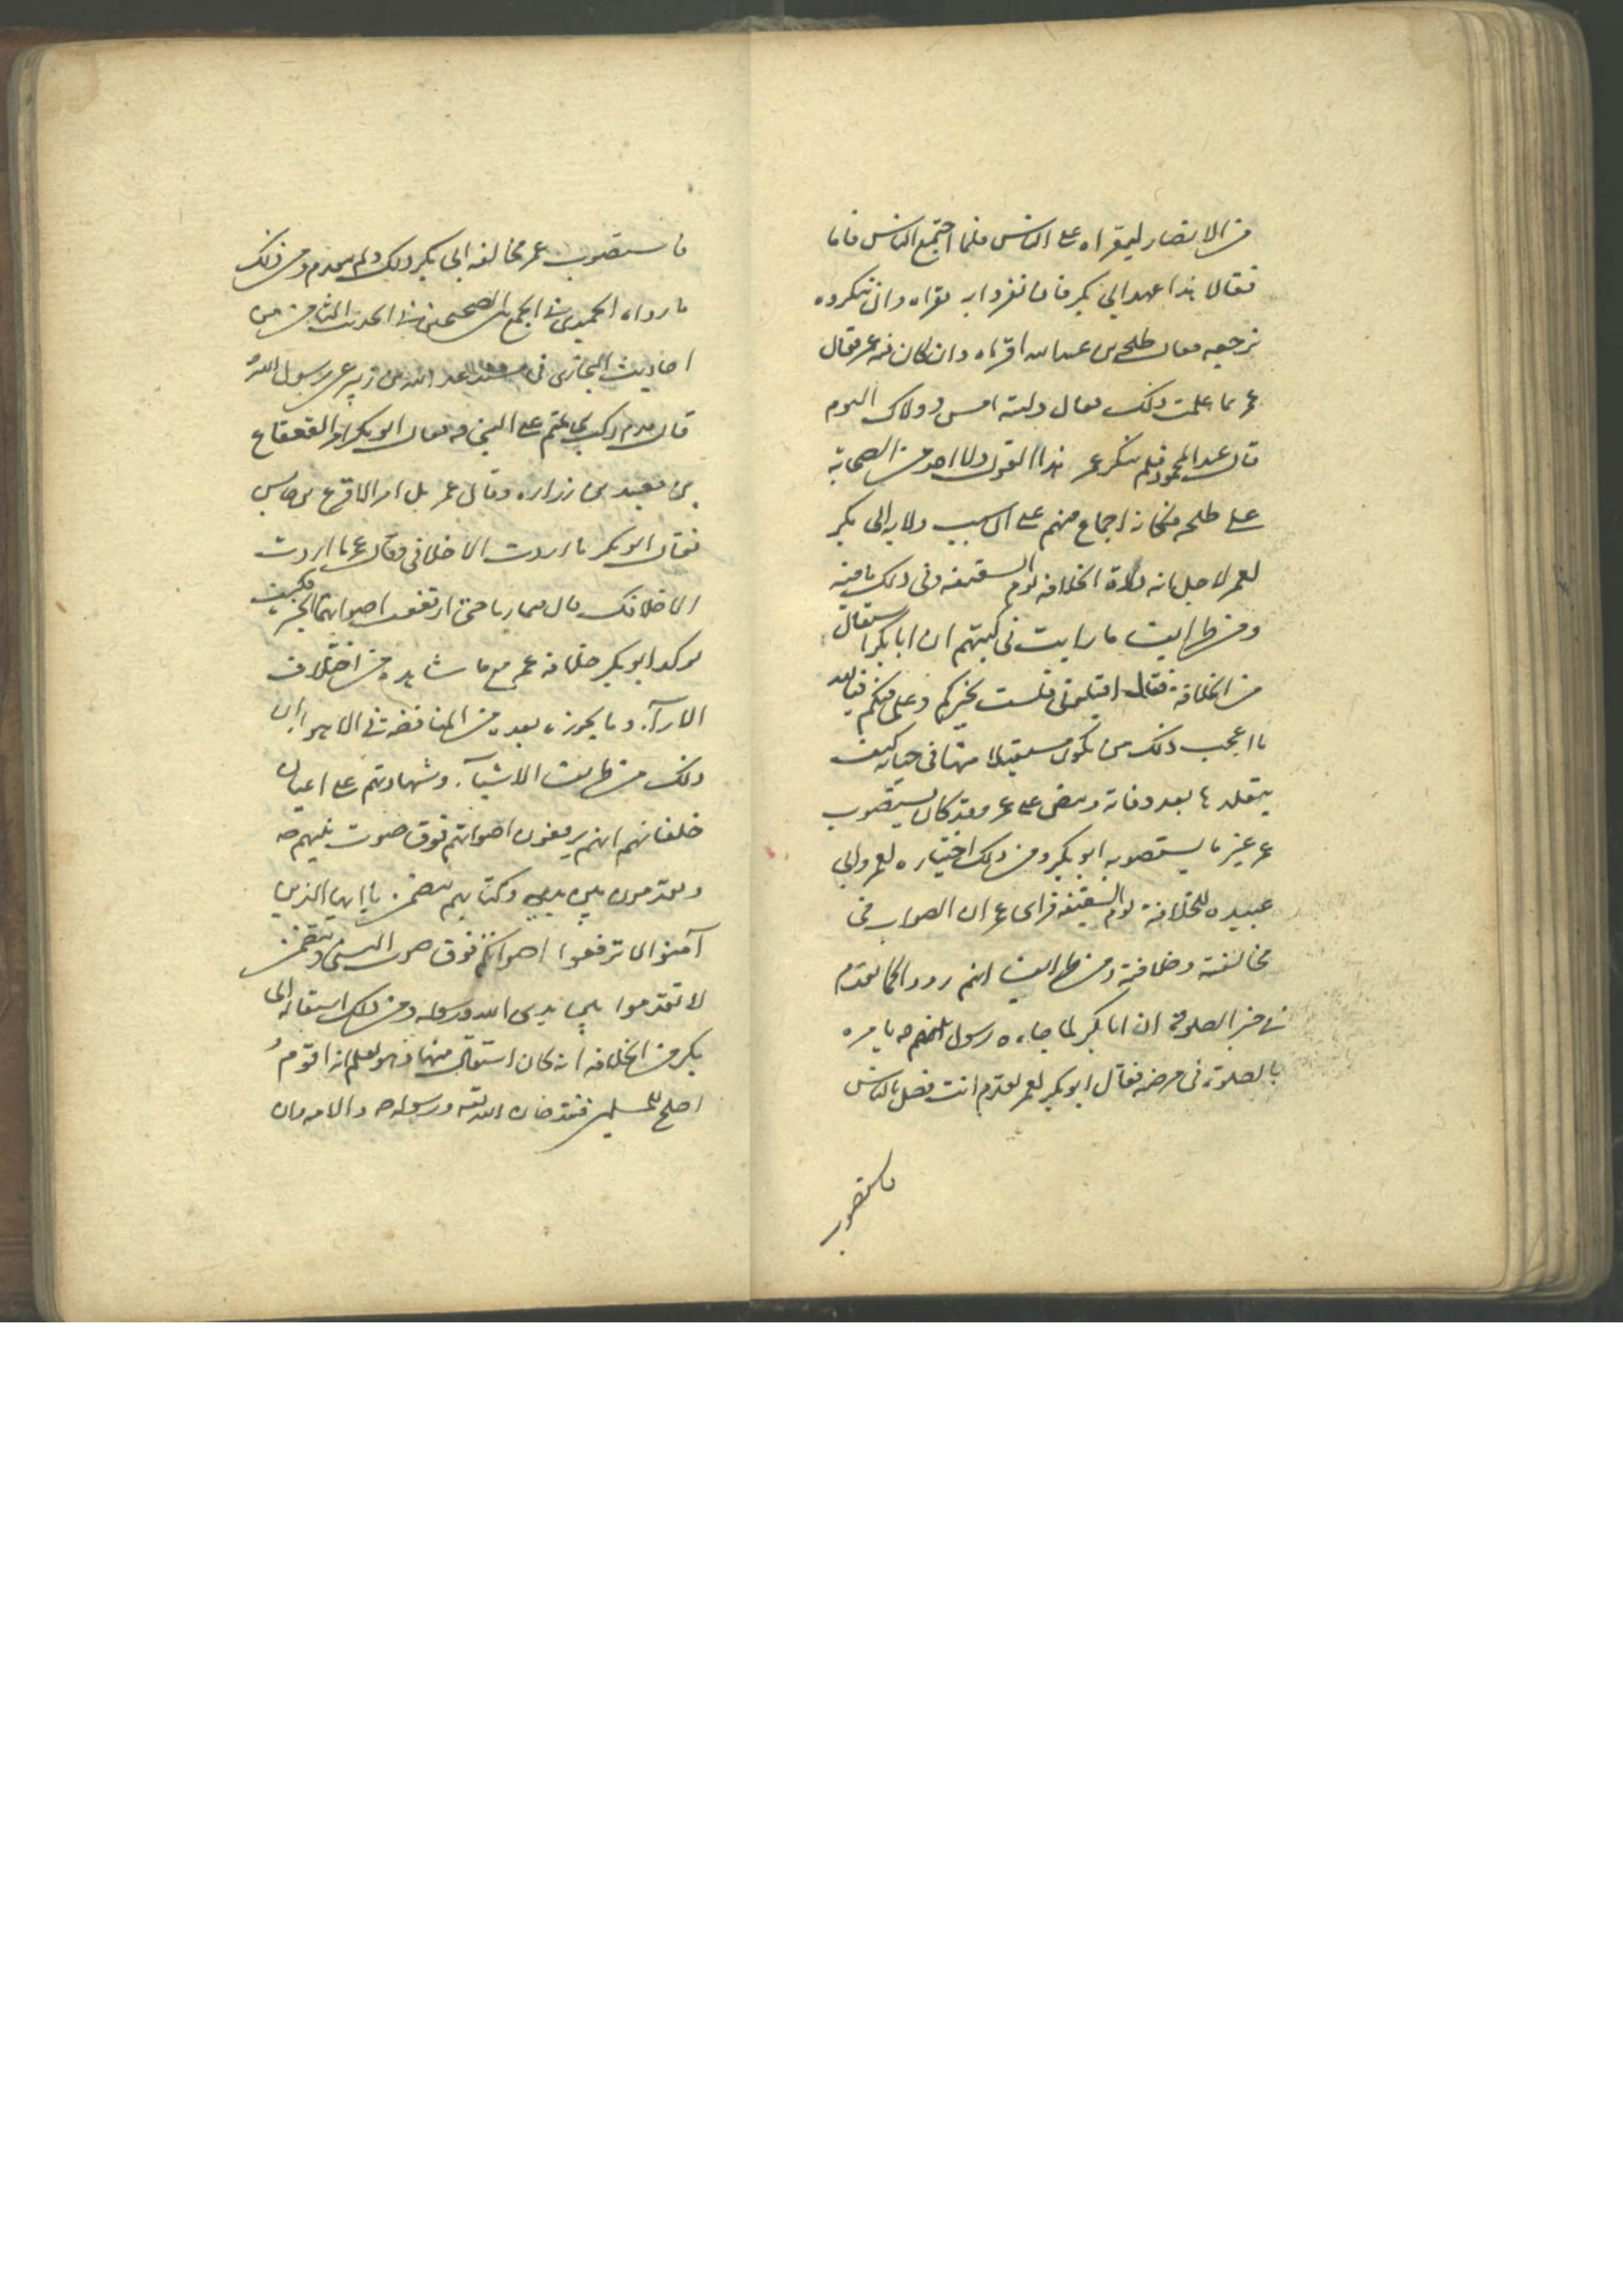 من الانصار ليقراه على الناس فلما اجتمع الناس قاما
فقالا هذا عهد ابى بكر فان تقروا به نقراه وان تنكروه
نرجعه فقال طلحه بن عبدالله اقراه وان كان فيه عمر فقال
عمر بما علمت ذلك فقال وليته امس وولاك اليوم
قال عبد المحمود فلم ينكر عمر هذا القول ولا احد من الصحابة
على طلحه فكانه اجماع منهم على ان سبب ولاية ابى بكر
لعمر لاجل انه ولاه الخلافه يوم السقيفه وفى ذلك ما فيه
ومن طرايف ما رايت فى كتبهم ان ابا بكر استقال
من الخلافة فقال اقيلونى فلست بخيركم وعلى فيكم فيالله
ما اعجب ذلك من يكون مستقيلا منها فى حياته كيف
يتقلدها بعد وفاته وينص على عمر وقد كان يستصوب
عمر غير ما يستصوبه ابو بكر ومن ذلك اختياره لعمر وابى
عبيده للخلافة يوم السقيفه فراى عمر ان الصواب فى
مخالفته وخلافه ومن طرايف انهم رووا كما تقدم
فى خبر الصلوة ان ابا بكر لما جاءه رسول النبى ص يامره
بالصلوة فى مرضه فقال ابو بكر لعمر تقدم انت فصل بالناس
فاستصوب
فاستصوب عمر مخالفه ابى بكر ذلك ولم يتقدم ومن ذلك
ما رواه الحميدى فى الجمع بين الصحيحين فى الحديث الثامن من
احاديث البخارى فى مسند عبد الله بن زبير عن رسول الله
قال قدم ركب بنى تميم على النبى ص فقال ابو بكر امر القعقاع
بن معبد بن زراره وقال عمر بل امر الاقرع بن حابس
فقال ابو بكر ما اردت الا خلافى وقال عمر ما اردت
الا خلافك قال فتماريا حتى ارتفعت اصواتهما الخبر فكيف
يوكد ابو بكر خلافه عمر مع ما شاهده من اختلاف
الارآء وما يجوزه بعده من المناقضة فى الاهوا ان
ذلك من طرايف الاشيآء وشهادتهم على اعيان
خلفائهم انهم يرفعون اصواتهم فوق صوت نبيهم ص
ويقدمون بين يديه وكتابهم يتضمن يا ايها الذين
آمنوا لا ترفعوا اصواتكم فوق صوت النبى ويتضمن
لا تقدموا بين يدى الله ورسوله ومن ذلك استقاله ابى
بكر من الخلافه انه كان استقال منها وهو يعلم انه اقوم و
اصلح للمسلمين فقد خان الله تعه ورسوله ص والامه وان